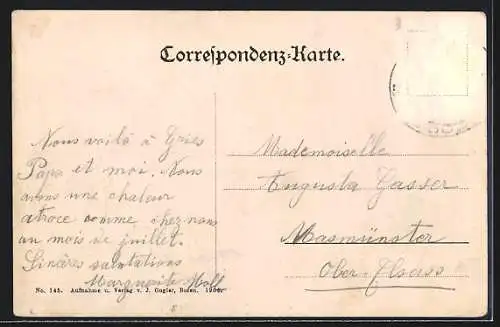 Correspondenz-Karte.
Nous voilà à Gries
Papa et moi. Nous
avons une chaleur
atroce comme chez nous
au mois de juillet.
Sincères salutations
Marguerite Moll
Mademoiselle
Augusta Gasser
Masmünster
Ober-Elsass
No. 145. Aufnahme u. Verlag v. J. Gugler, Bozen. 1906.